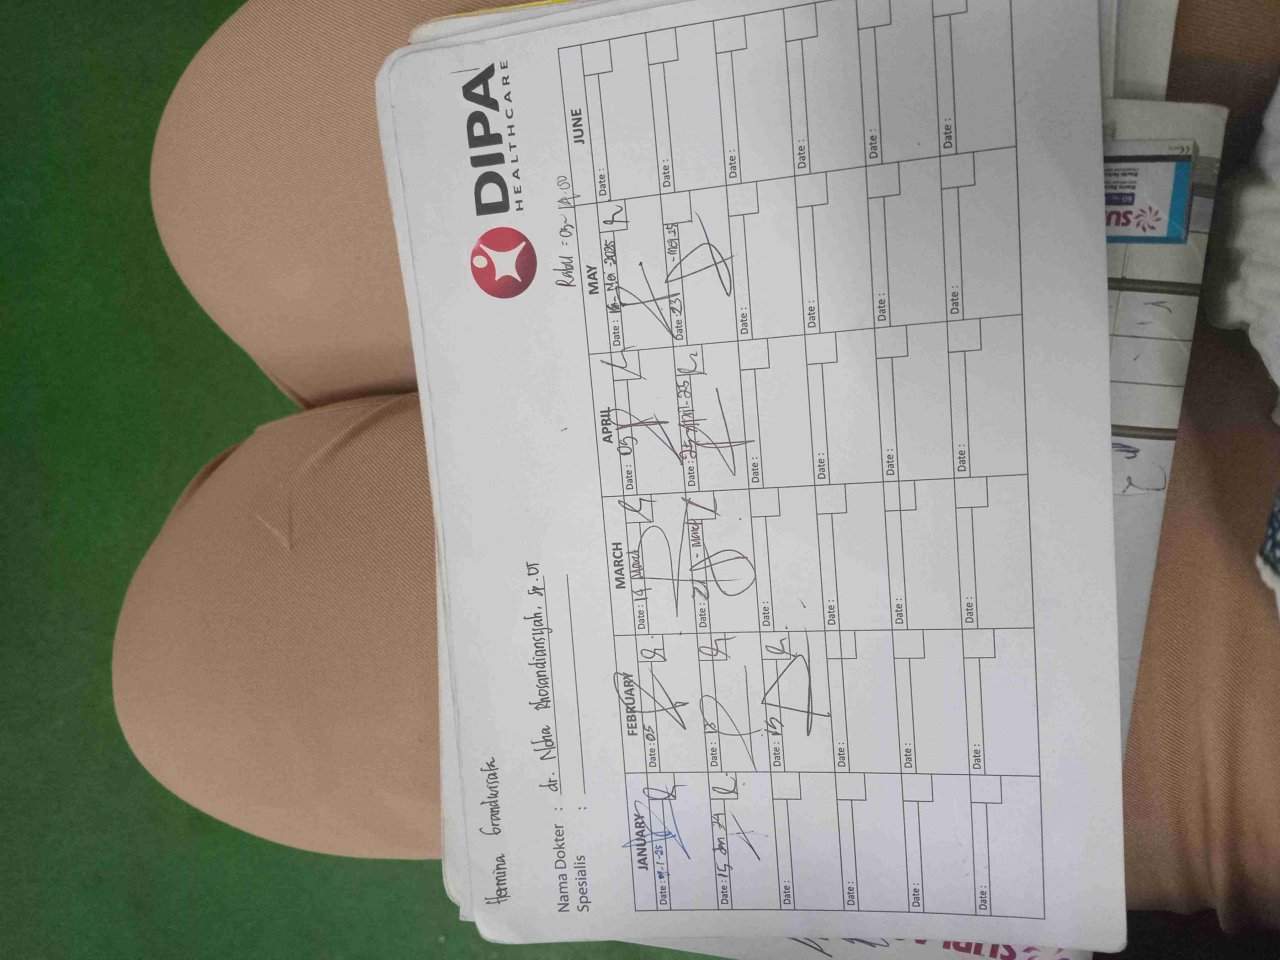 DIPA
HEALTHCARE
Hermina Grandwisata
Nama Dokter : dr. Ndha Rhosandiansyah, Sp.OT
Spesialis :
Rabu = 03- 14.00
JANUARY FEBRUARY MARCH APRIL MAY JUNE
Date : Date : 05 Date : 14 March Date : 03 Date : Mei 2025 Date :
Date : 15 Jan Date : 18 Date : 21 - March Date : 25 April - 25 Date : 23 - Mei 25 Date :
Date : Date : Date : Date : Date : Date :
Date : Date : Date : Date : Date : Date :
Date : Date : Date : Date : Date : Date :
Date : Date : Date : Date : Date : Date :